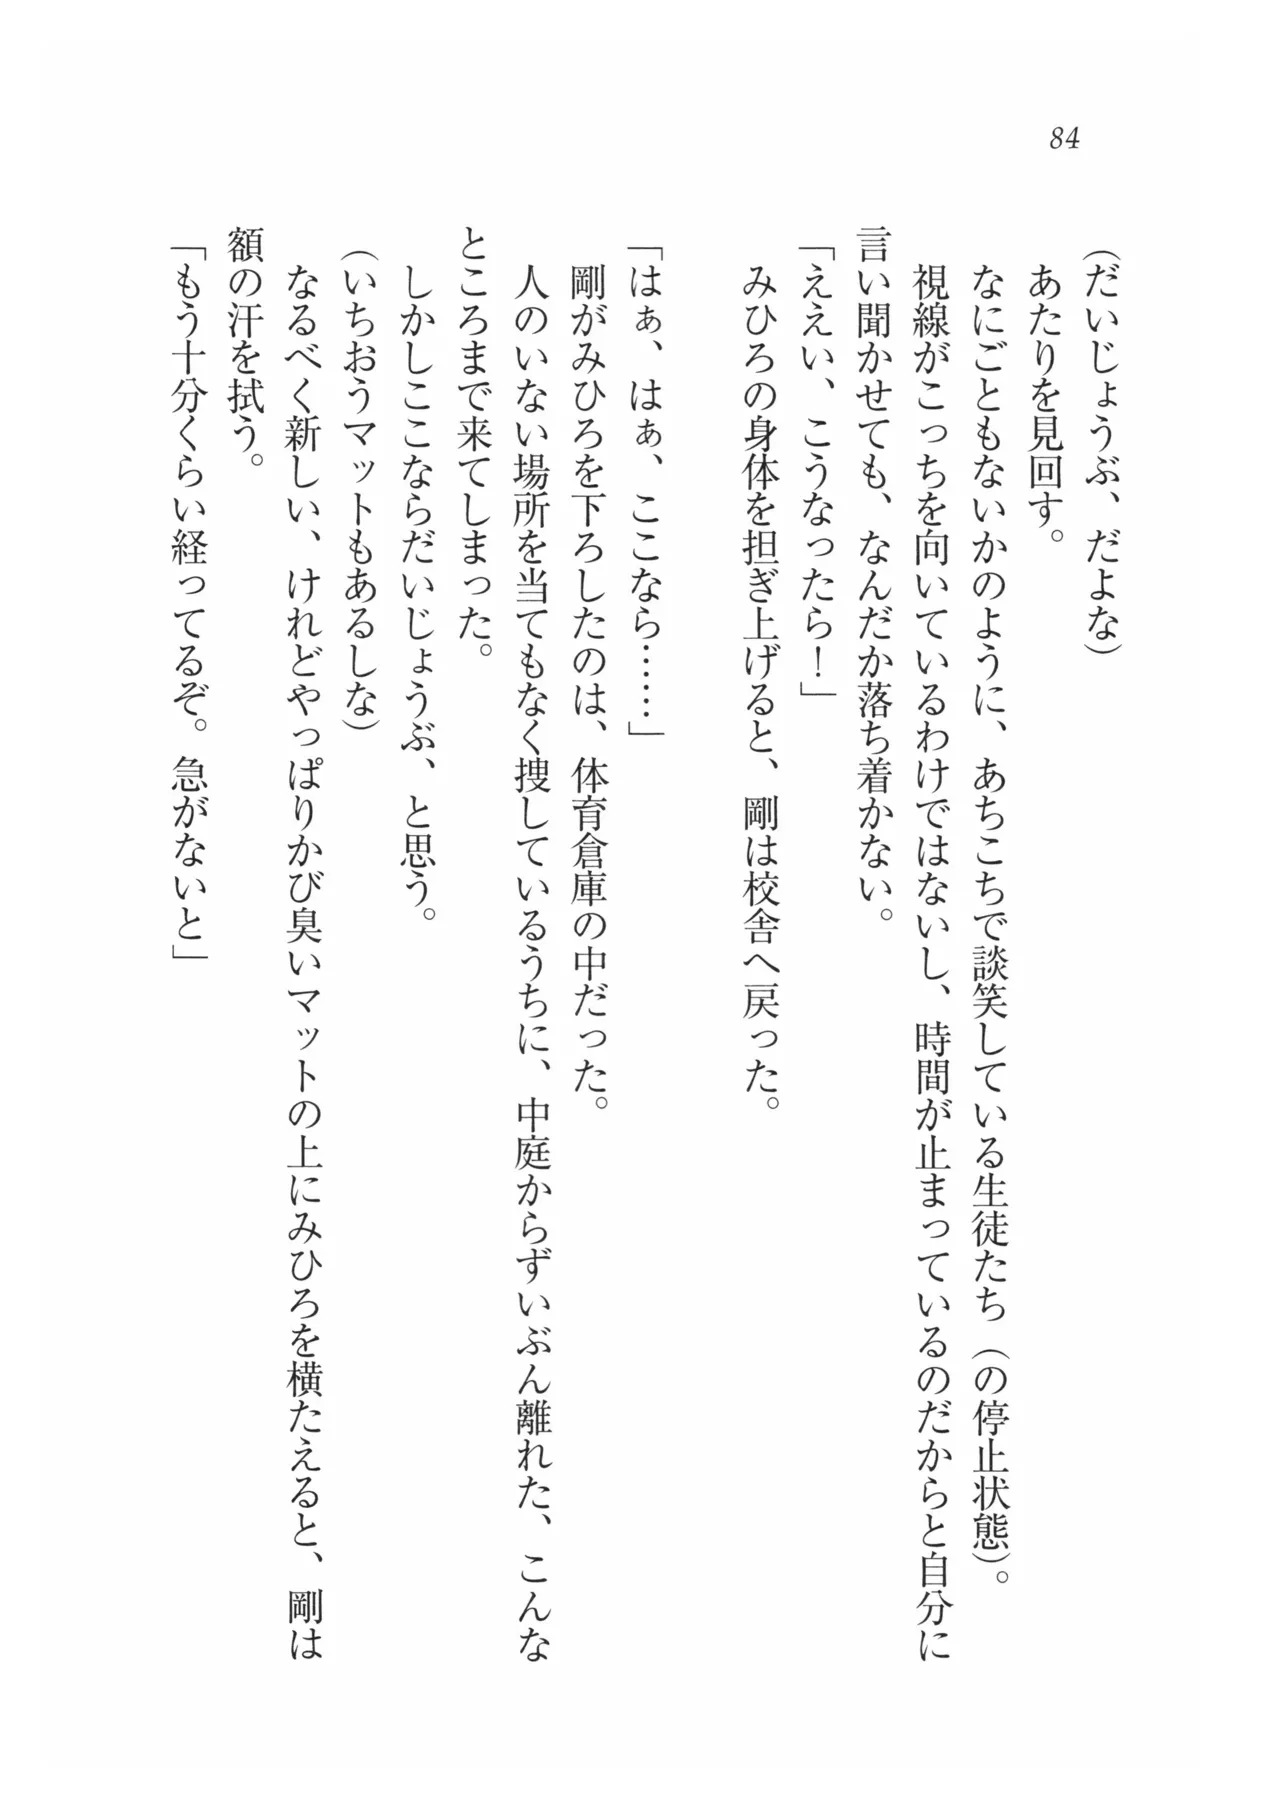 84
(だいじょうぶ、だよな)
あたりを見回す。
なにごともないかのように、あちこちで談笑している生徒たち(の停止状態)。
視線がこっちを向いているわけではないし、時間が止まっているのだからと自分に
言い聞かせても、なんだか落ち着かない。
「ええい、こうなったら!」
みひろの身体を担ぎ上げると、剛は校舎へ戻った。
「はぁ、はぁ、ここなら……」
剛がみひろを下ろしたのは、体育倉庫の中だった。
人のいない場所を当てもなく捜しているうちに、中庭からずいぶん離れた、こんな
ところまで来てしまった。
しかしここならだいじょうぶ、と思う。
(いちおうマットもあるしな)
なるべく新しい、けれどやっぱりかび臭いマットの上にみひろを横たえると、剛は
額の汗を拭う。
「もう十分くらい経ってるぞ。急がないと」